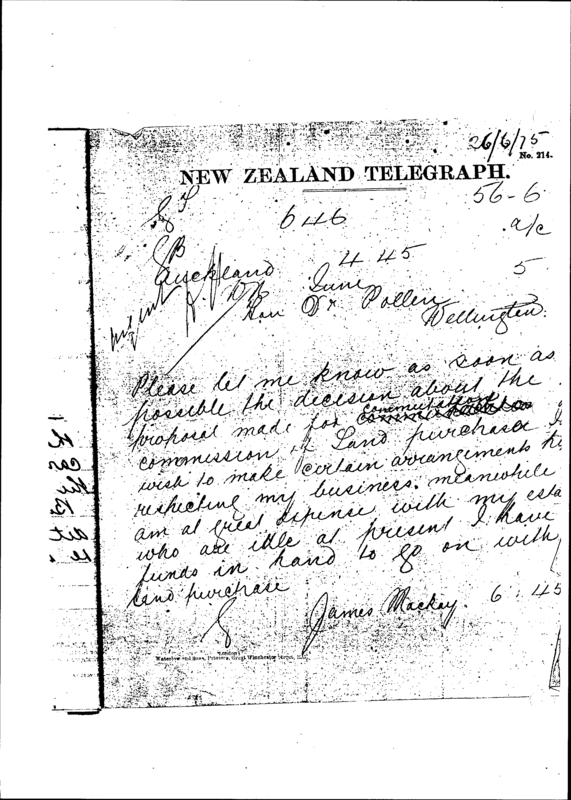 26/6/75
No. 214.
NEW ZEALAND TELEGRAPH.
56-6
646
a/c
Auckland 4 45
June 5
urgent
Hon Dr Pollen
Wellington
Please let me know as soon as
possible the decision about the
proposal made for commutation
commission of Land purchase I
wish to make certain arrangements he
respecting my business. meanwhile
am at great expense with my esta
who are idle at present I have
funds in hand to go on with
land purchase
James Mackay. 6.45
London
Waterlow and Sons, Printers, Great Winchester Street,